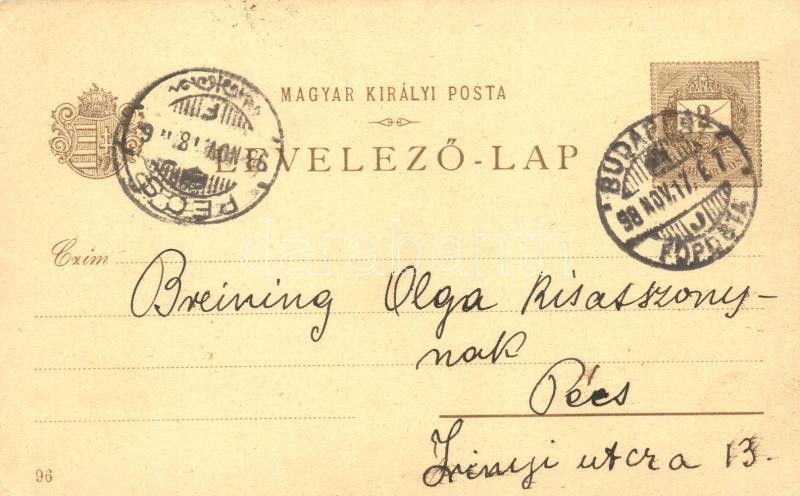 MAGYAR KIRÁLYI POSTA
LEVELEZŐ-LAP
BUDAPEST
98 NOV. 17. E. 7
J
FŐPOSTA
PÉCS
98 NOV. 18
2
Czím
Breining Olga kisasszony-
nak
Pécs
Zrinyi utcza 13.
96
darabanth